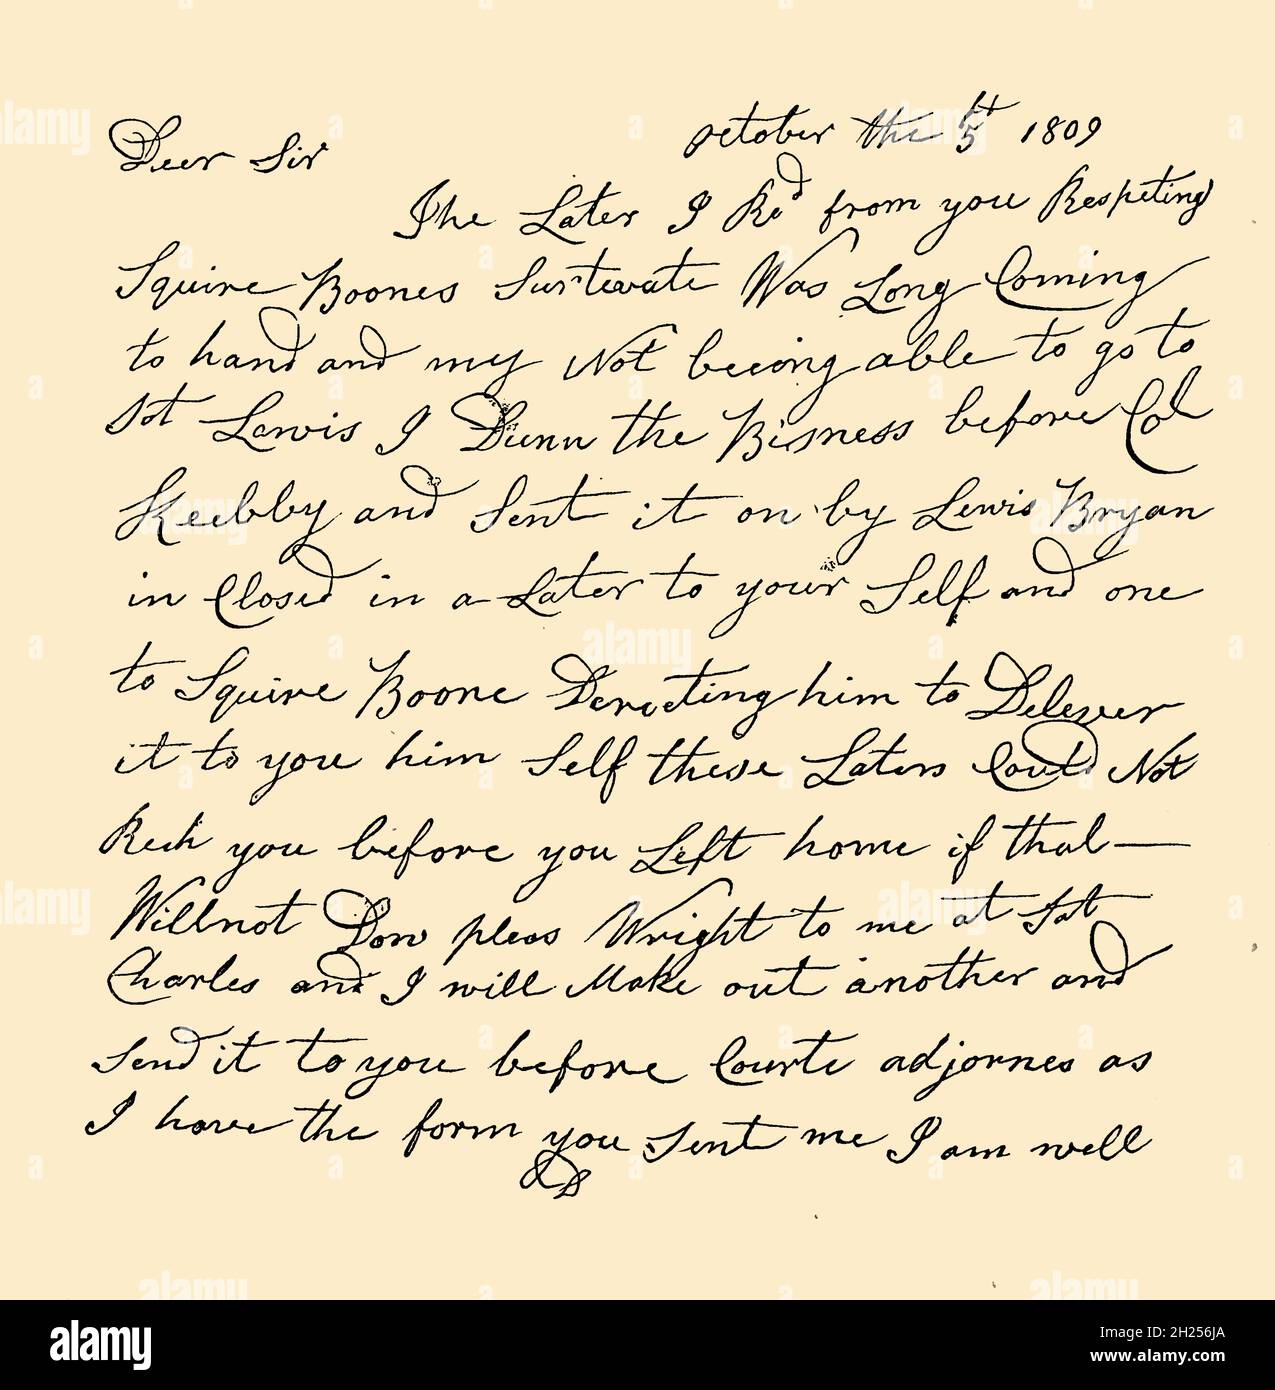 October the 5th 1809
Deer Sir
The Later I Red from you Respeting
Squire Boones Surtevate Was Long Coming
to hand and my Not beeing able to go to
Sat Lewis I Dunn the Bisness before Col
Keebby and Sent it on by Lewis Bryan
in Closed in a Later to your Self and one
to Squire Boone Derecting him to Delever
it to you him Self these Laters Could Not
Rech you before you Left home if that
Will not Dow pleas Wright to me at Sat
Charles and I will Make out another and
Send it to you before Courte adjornes as
I have the form you Sent me I am well
&
alamy
Image ID: 2H256JA
www.alamy.com